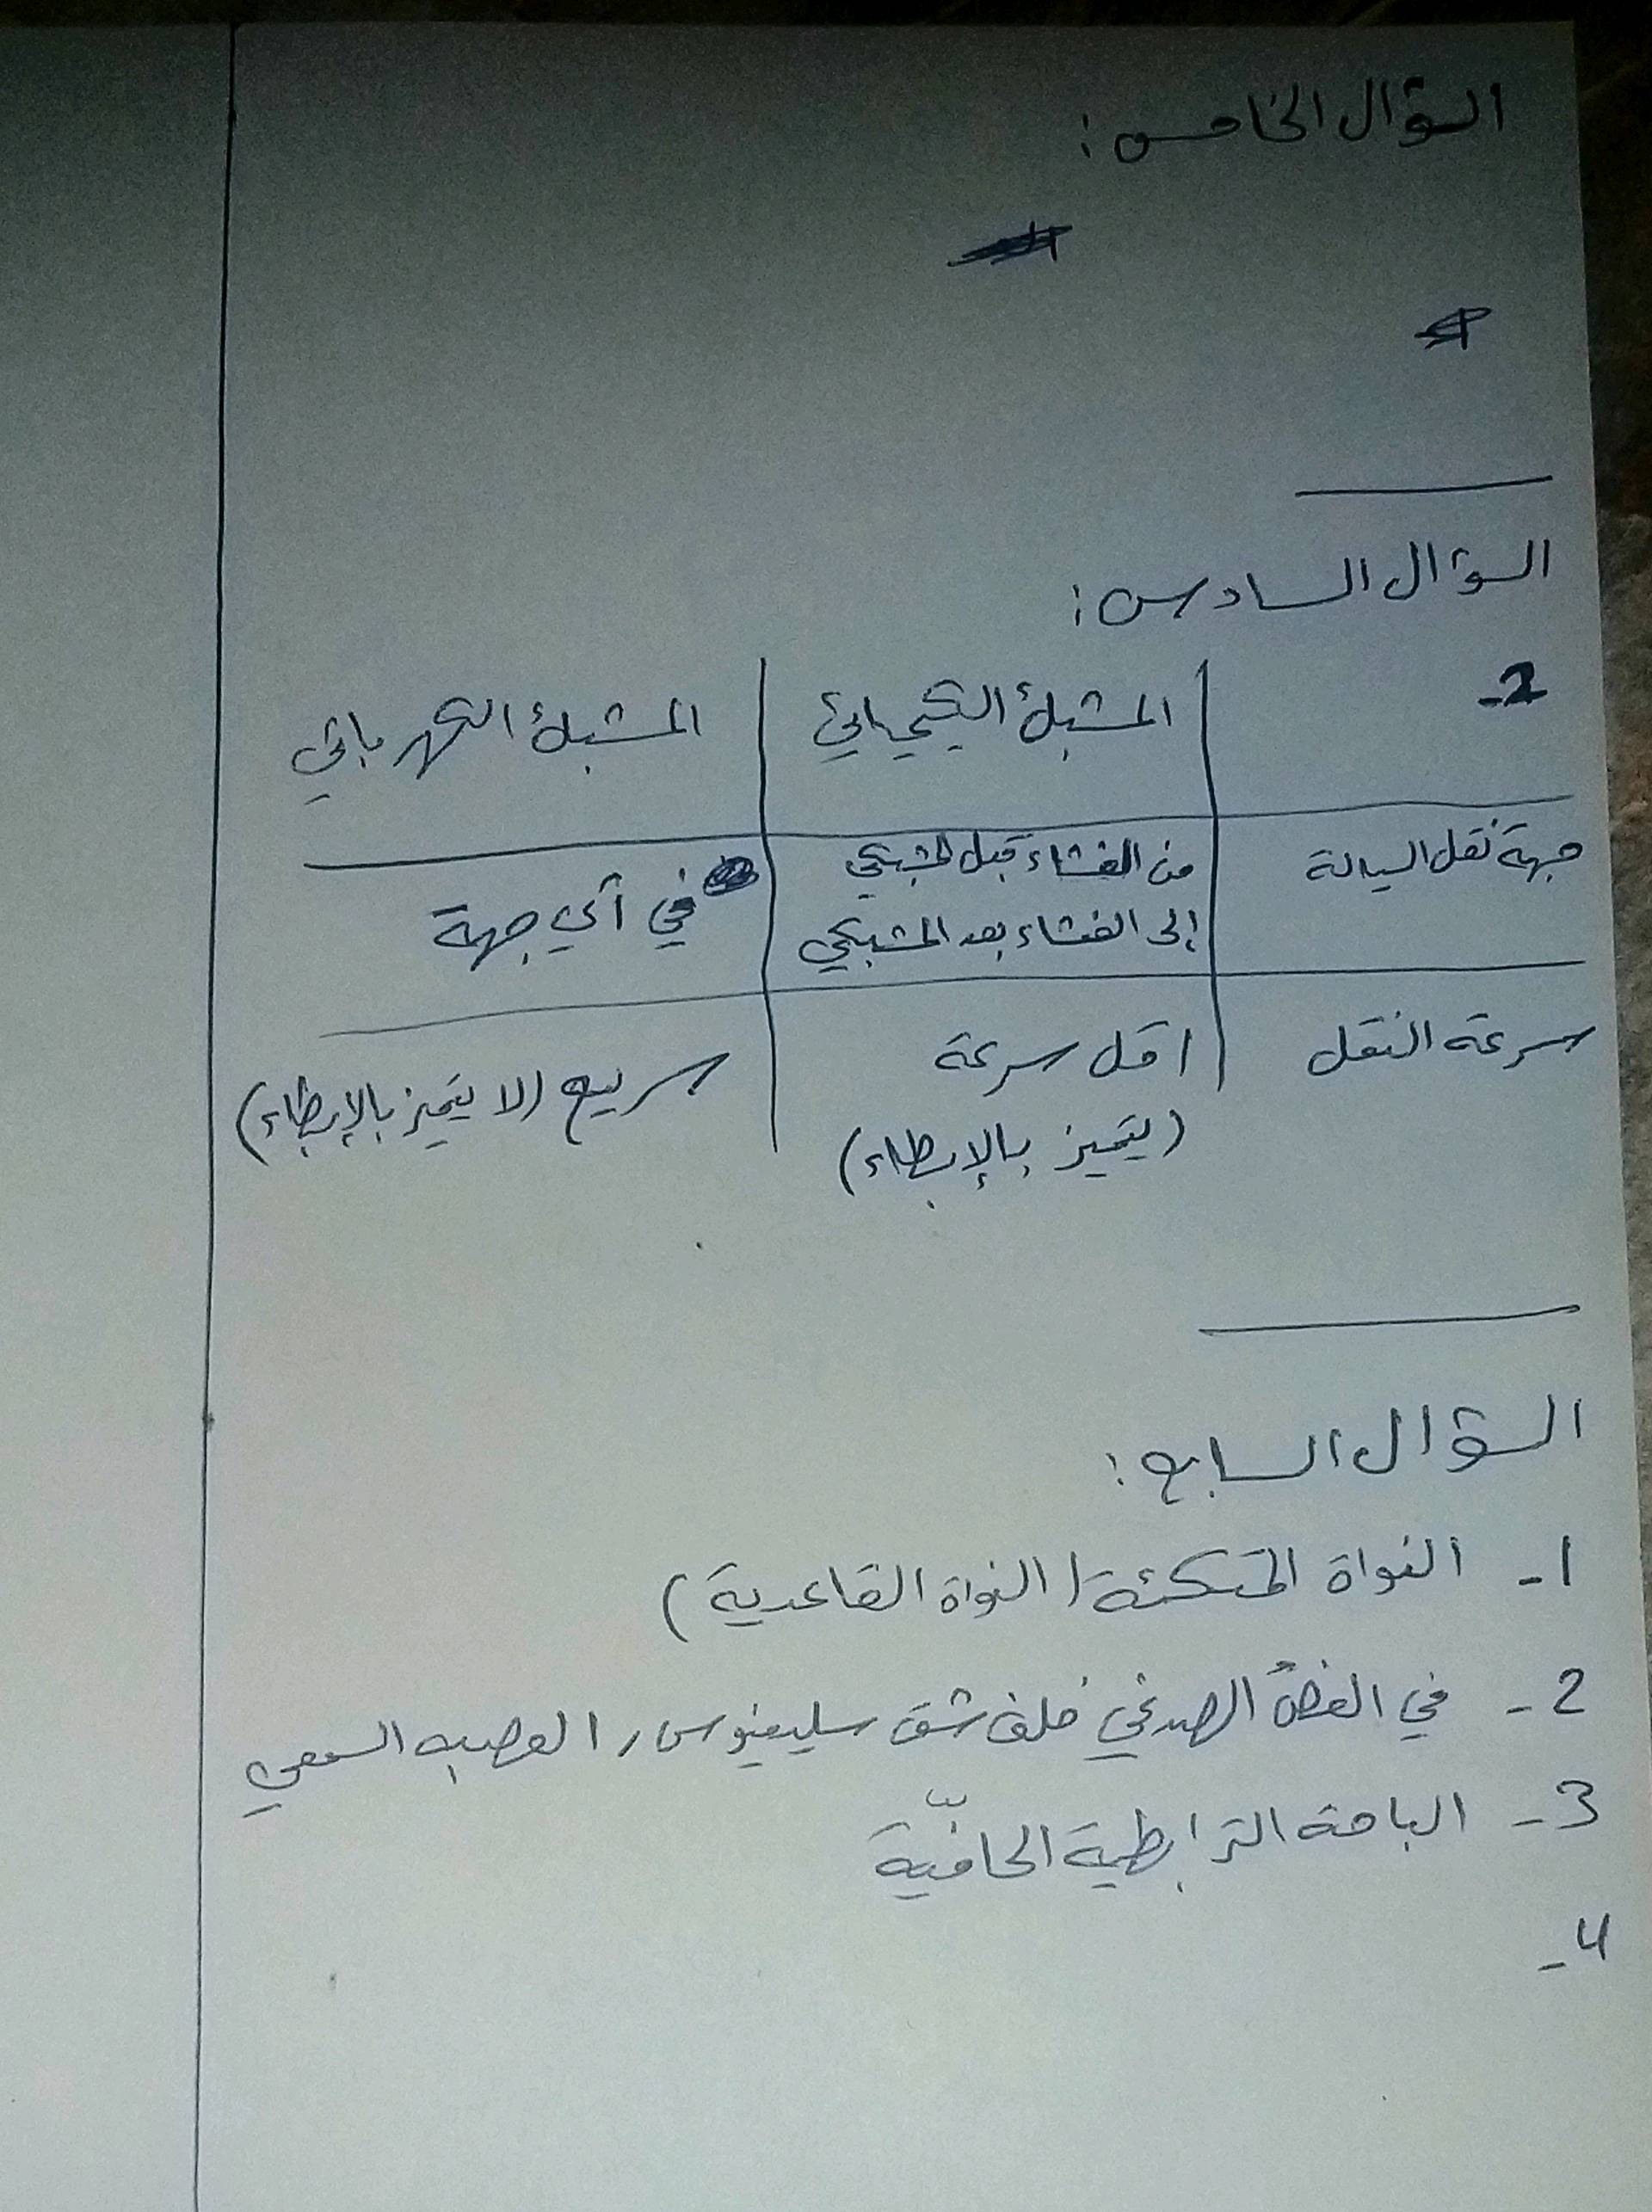 السؤال الخامس:
السؤال السادس:
2-
المشبك الكيميائي
المشبك الكهربائي
جهة نقل السيالة
من الغشاء قبل المشبكي
إلى الغشاء بعد المشبكي
في أي جهة
سرعة النقل
اقل سرعة
(يتميز بالإبطاء)
سريع (لا يتميز بالإبطاء)
السؤال السابع:
1- النواة المتكئة (النواة القاعدية)
2- في الفص الصدغي خلف شق سيلفيوس، العصب السمعي
3- الباحة الترابطية الحافيّة
4-